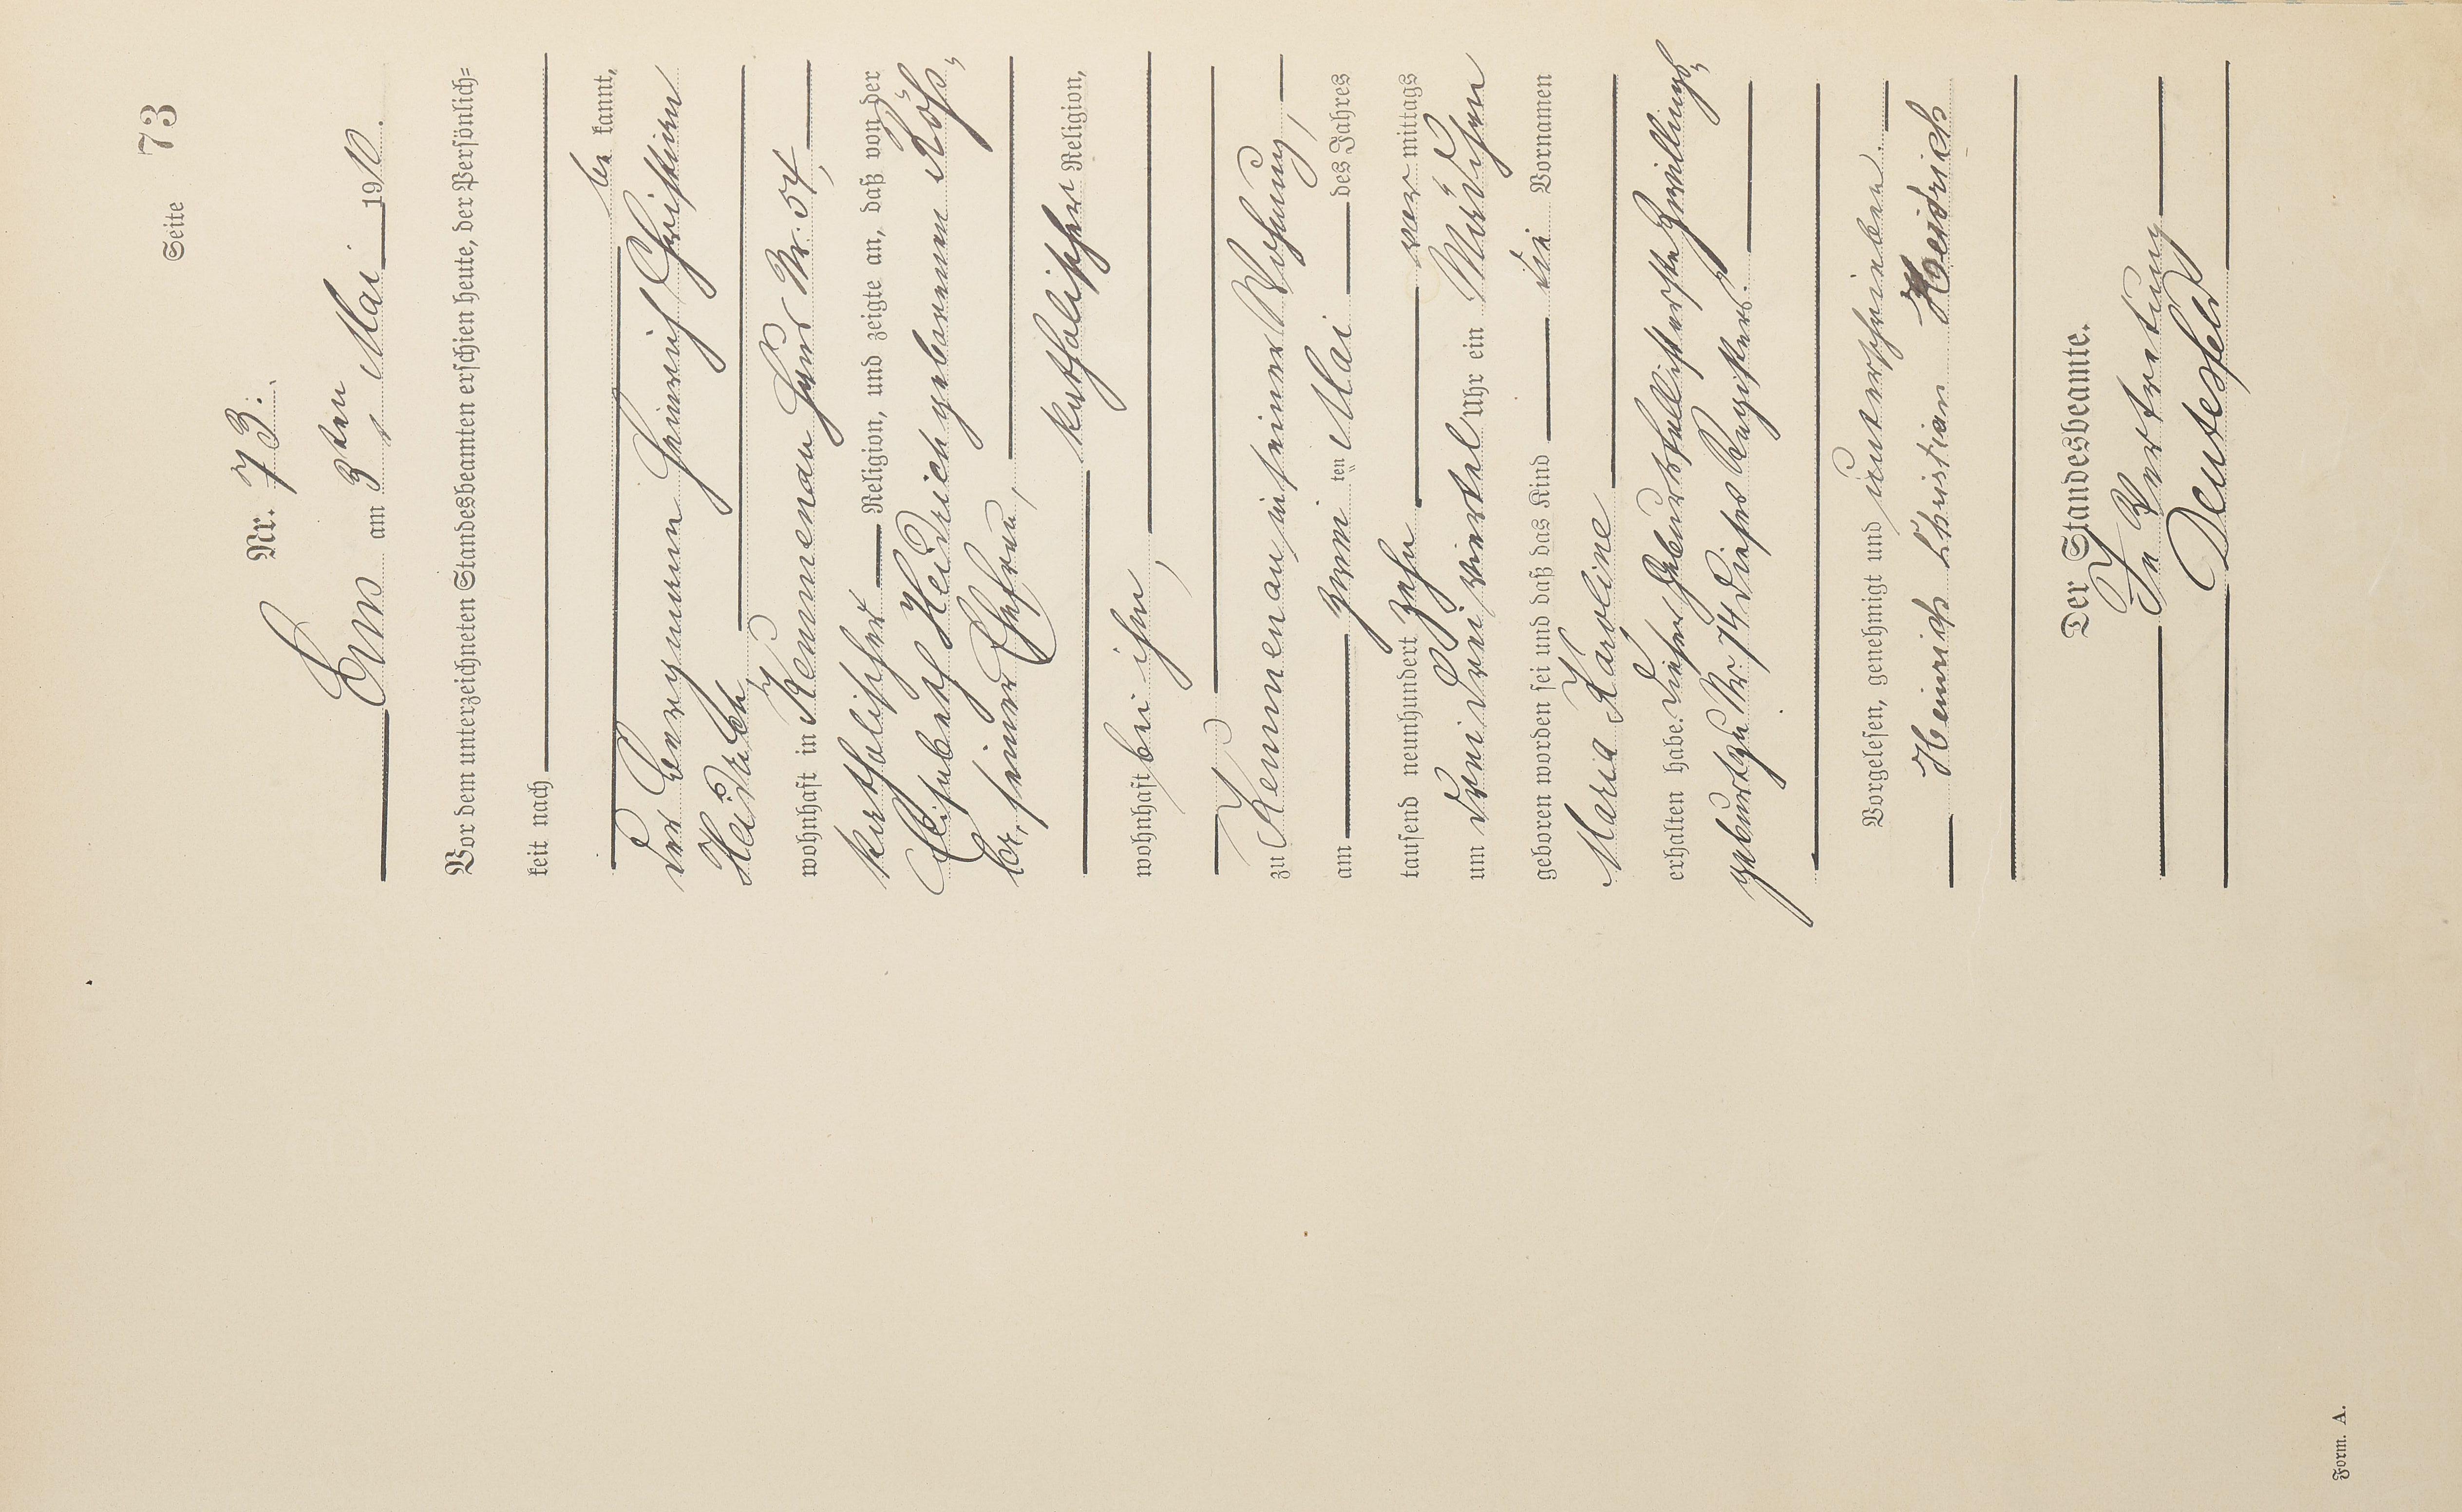 Seite 73
Nr. 73.
Ems am 3ten Mai 1910.
Vor dem unterzeichneten Standesbeamten erschien heute, der Persönlich=
keit nach
be kannt,
der Bergmann Heinrich Christian
Heidrich
wohnhaft in Kemmenau Haus Nr. 54,
katholischer Religion, und zeigte an, daß von der
Elisabeth Heidrich geborenen Röß=
ler, seiner Ehefrau,
katholischer Religion,
wohnhaft bei ihm,
zu Kemmenau in seiner Wohnung,
am zwei ten Mai des Jahres
tausend neunhundert zehn vor mittags
um drei drei viertel Uhr ein Mädchen
geboren worden sei und daß das Kind die Vornamen
Maria Karoline
erhalten habe. Dieser Geburtsfall ist erste Zwillings=
geburt zu Nr. 74 dieses Registers.
Vorgelesen, genehmigt und unterschrieben.
Heinrich Christian Heidrich
Der Standesbeamte.
In Vertretung
Deutesfeld
Form. A.